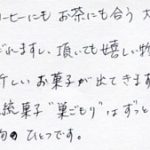 コーヒーにも お茶にも合う 大
ぎれますし、頂いても嬉しい物
新しい お菓子が出てきます
統菓子"巣ごもり"はずっと
旬の ひとつです。